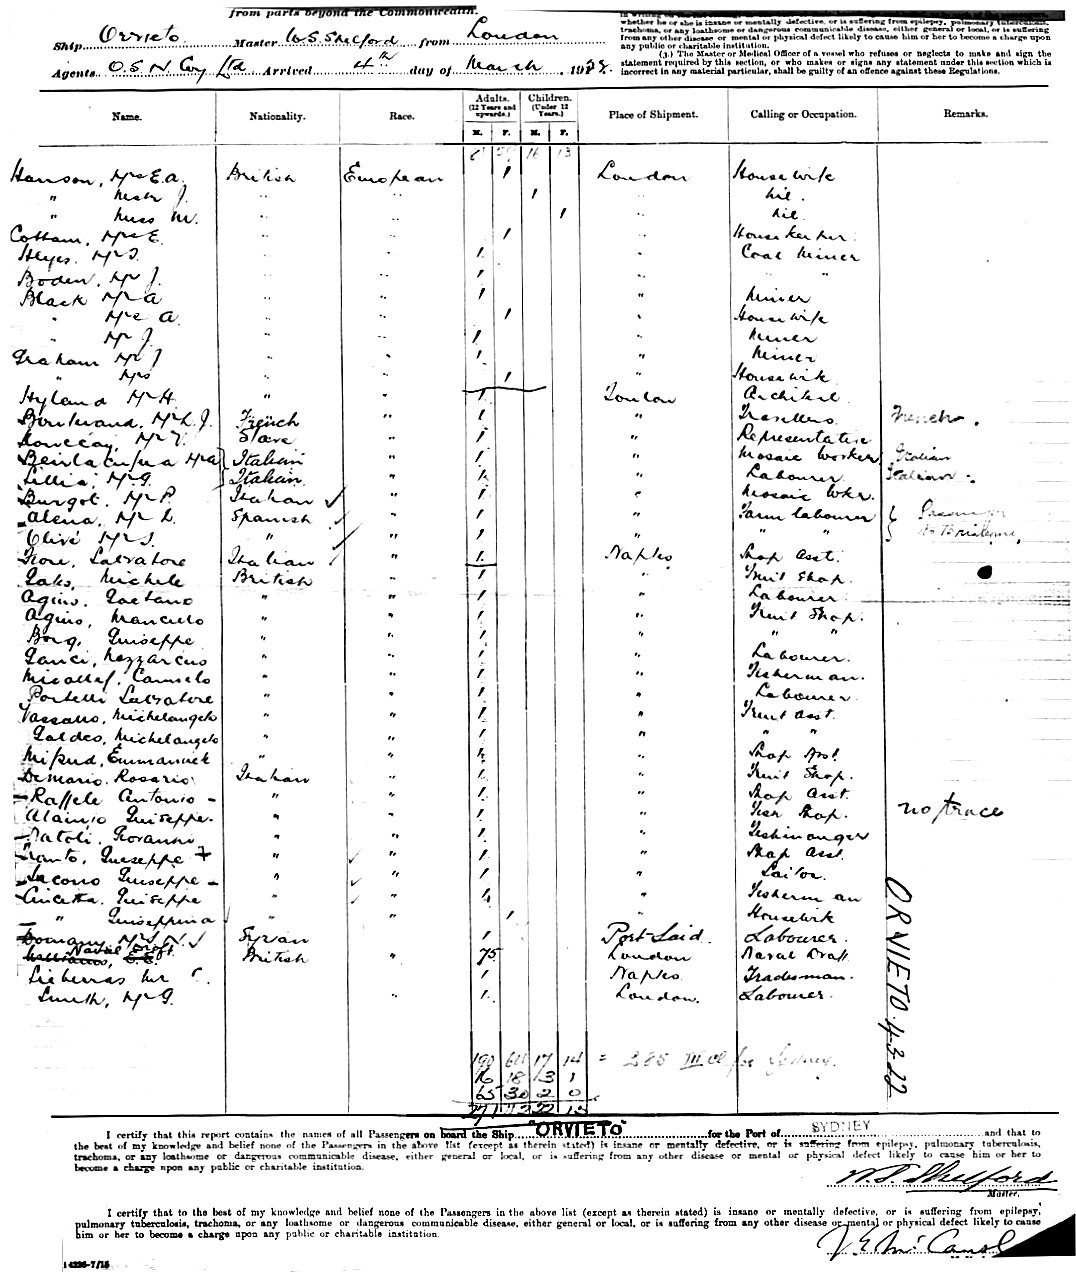 from parts beyond the Commonwealth.
Ship Orvieto Master W.S. Shelford from London
Agents O.S.N. Coy Ltd Arrived 4th day of March 19
whether he or she is insane or mentally defective, or is suffering from epilepsy, pulmonary tuberculosis,
trachoma, or any loathsome or dangerous communicable disease, either general or local, or is suffering
from any other disease or mental or physical defect likely to cause him or her to become a charge upon
any public or charitable institution.
(2) The Master or Medical Officer of a vessel who refuses or neglects to make and sign the
statement required by this section, or who makes or signs any statement under this section which is
incorrect in any material particular, shall be guilty of an offence against these Regulations.
Name. Nationality. Race. Adults. (12 Years and upwards.) Children. (Under 12 Years.) Place of Shipment. Calling or Occupation. Remarks.
M. F. M. F.
16 13
Hanson, Mrs E.A. British European 1 London Housewife
" Mstr J. " " 1 " Nil.
" Miss M. " " 1 " Nil.
Cottam, Mrs E. " " 1 " Housekeeper
Heyes, Mr S. " " 1 " Coal Miner
Boden, Mr J. " " 1 " " "
Black Mr A " " 1 " Miner
" Mrs A. " " 1 " Housewife
" Mr J. " " 1 " Miner
Graham Mr J " " 1 " Miner
" Mrs " " 1 " Housewife
Hyland Mr H. " " 1 Toulon Architect
Mr L.J. French " 1 " Travellers French.
Mr V. " 1 " Representative
Mr A Italian " 1 " Mosaic Worker Italian
Lillia, Mr G. Italian " 1 " Labourer Italian
Burgot, Mr P. Italian " 1 " Mosaic Wkr.
Alena, Mr L. Spanish " 1 " Farm labourer Passengers
Olivé Mr S. " " 1 " " " to Brisbane.
Fiore, Salvatore Italian " 1 Naples Shop Asst.
Michele British " 1 " Fruit Shop.
Agius, Gaetano " " 1 " Labourer
Agius, " " 1 " Fruit Shop.
Borg, Guiseppe " " 1 " " "
Gauci, Nazzareno " " 1 " Labourer.
Micallef, Carmelo " " 1 " Fisherman.
Portelli Salvatore " " 1 " Labourer
Vassallo, Michelangelo " " 1 " Fruit Asst.
Galdes, Michelangelo " " 1 " " "
Mifsud, Emmanuele " " 1 " Shop Asst.
Demario, Rosario Italian " 1 " Fruit Shop.
Raffele Antonio " " 1 " Shop Asst.
Alainio Guiseppe. " " 1 " Fish Shop. no trace
Natoli, Giovanni " " 1 " Fishmonger
Guiseppe " " 1 " Shop Asst
Iacono Guiseppe " " 1 " Sailor.
Cincotta, Guiseppe " " 1 " Fisherman
" Guiseppina " " 1 " Housewife
Syrian " 1 Port Said. Labourer.
Naval Draft British " 75 London Naval Draft
Mr C. 1 Naples Tradesman.
Smith, Mr G. " 1 London. Labourer.
190 64 17 14 = 285 III Cl for Sydney.
16 18 3 1
65 30 2 0
271 112 22 15
ORVIETO 4.3.22
I certify that this report contains the names of all Passengers on board the Ship "ORVIETO" for the Port of SYDNEY and that to
the best of my knowledge and belief none of the Passengers in the above list (except as therein stated) is insane or mentally defective, or is suffering from epilepsy, pulmonary tuberculosis,
trachoma, or any loathsome or dangerous communicable disease, either general or local, or is suffering from any other disease or mental or physical defect likely to cause him or her to
become a charge upon any public or charitable institution.
W.S. Shelford
Master.
I certify that to the best of my knowledge and belief none of the Passengers in the above list (except as therein stated) is insane or mentally defective, or is suffering from epilepsy,
pulmonary tuberculosis, trachoma, or any loathsome or dangerous communicable disease, either general or local, or is suffering from any other disease or mental or physical defect likely to cause
him or her to become a charge upon any public or charitable institution.
14226-7/15